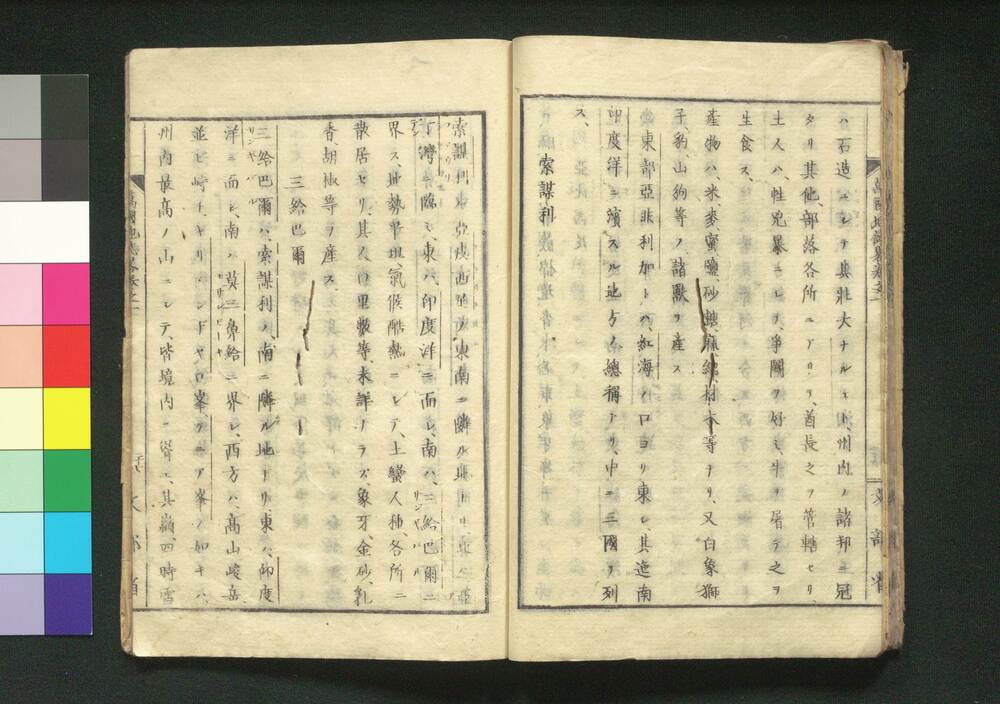 ハ石造ニシテ其壯大ナルコト、州内ノ諸邦ニ冠
タリ其他、部落各所ニアリテ、酋長之ヲ管轄セリ、
土人ハ、性兇暴ニシテ、爭鬪ヲ好ミ、牛ヲ屠テ之ヲ
生食ス、
産物ハ、米、麥、蜜、鹽、砂糖、麻、綿、材木等ナリ、又白象、獅
子、豹、山狗等ノ諸獸ヲ産ス
東部亞非利加トハ、紅海ノ口ヨリ東シ、其迤南
印度洋ニ濱スル地方ノ總稱ナリ、中ニ三國ヲ列
ス、
索謀利
索謀利ハ、亞皮西尼ノ東南ニ隣ル地ナリ北ハ亞
丁灣ニ臨ミ、東ハ、印度洋ニ面シ、南ハ、三給巴爾ニ
界ス、地勢平坦、氣候酷熱ニシテ、土蠻人種、各所ニ
散居セリ、其人口里數等、未詳ナラズ、象牙、金砂、乳
香、胡椒等ヲ産ス、
三給巴爾
三給巴爾ハ、索謀利ノ、南ニ隣ル地ナリ、東ハ、印度
洋ニ面シ、南ハ、莫三鼻給ニ界シ、西方ハ、高山峻岳
並ビ峙チ、キリマンドヤロ峯、ケニア峯ノ如キハ、
州内最高ノ山ニシテ、皆境内ニ聳エ、其巓、四時雪
萬國地誌畧卷之一
文部省